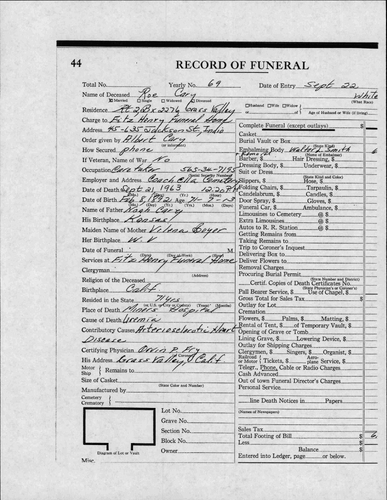 44
RECORD OF FUNERAL
Total No. Yearly No. 69 Date of Entry Sept 22
Name of Deceased Roe Cory White
Married Single Widowed Divorced (What Race)
Residence Rt 2 Bx 2276 Grass Valley Husband Wife Widow of
Charge to Fitz Henry Funeral Home Age of Husband or Wife (if living)
Address 45-635 Jackson St, Indio Complete Funeral (except outlays) $
Order given by Albert Cory Casket
How Secured phone Burial Vault or Box
If Veteran, Name of War No Embalming Body Walter L Smith
Occupation Caretaker 565-36-7195 Barber, $ Hair Dressing, $
Employer and Address Coachella Cemetery Suit or Dress
Date of Death Sept 21 1963 12:20 PM Slippers, $ Hose, $
Date of Birth Feb 8 1892 71-7-13 Folding Chairs, $ Tarpaulin, $
Name of Father Noah Cory Candelabrum, $ Candles, $
His Birthplace Kansas Door Spray, $ Gloves, $
Maiden Name of Mother Funeral Car, $ Ambulance, $
Her Birthplace W. V. Limousines to Cemetery @ $
Extra Limousines @ $
Autos to R. R. Station @ $
Getting Remains from
Date of Funeral M. Taking Remains to
Services at Fitz Henry Funeral Home Trip to Coroner's Inquest
Clergyman Delivering Box to
Religion of the Deceased Deliver Flowers to
Birthplace Calif Removal Charges
Resided in the State 71 yrs Procuring Burial Permit
Place of Death Miners Hospital Certif. Copies of Death Certificates No.
Cause of Death Uremia Pall Bearer Service, $ Use of Chapel, $
Contributory Causes Arteriosclerotic Heart Gross Total for Sales Tax $
Disease Outlay for Lot
Certifying Physician Orrin P. Fry Cremation
His Address Grass Valley, Calif Flowers, $ Palms, $ Matting, $
Motor Ship Remains to Rental of Tent, $ of Temporary Vault, $
Size of Casket Opening of Grave or Tomb
Manufactured by Lining Grave, $ Lowering Device, $
Cemetery Outlay for Shipping Charges
Crematory Clergymen, $ Singers, $ Organist, $
Lot No. Railroad or Motor Tickets, $ Aeroplane Service, $
Grave No. Telegr., Phone, Cable or Radio Charges
Section No. Cash Advanced
Block No. Out of town Funeral Director's Charges
Owner Personal Service
Diagram of Lot or Vault line Death Notices in Papers
Misc. (Names of Newspapers)
Sales Tax
Total Footing of Bill $
Less
Balance
Entered into Ledger, page or below.